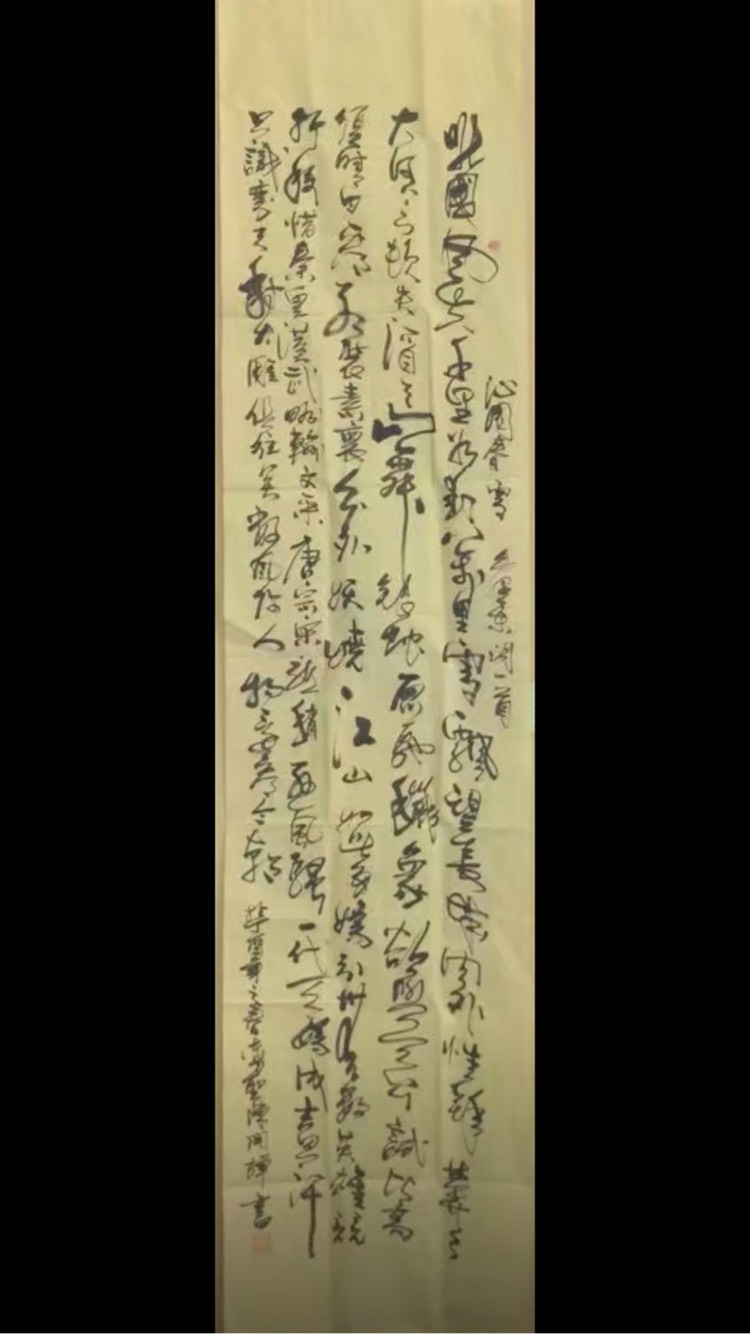 沁園春雪 毛澤東詞一首
北國風光千里冰封万里雪飄望長城内外惟餘莽々
大河上下頓失滔々山舞銀蛇原馳蠟象欲與天公試比高
須晴日看紅裝素裹分外妖嬈江山如此多嬌引無數英雄競
折腰惜秦皇漢武略輸文采唐宗宋祖稍遜風騷一代天驕成吉思汗
只識彎弓射大雕俱往矣數風流人物還看今朝
年之春 書